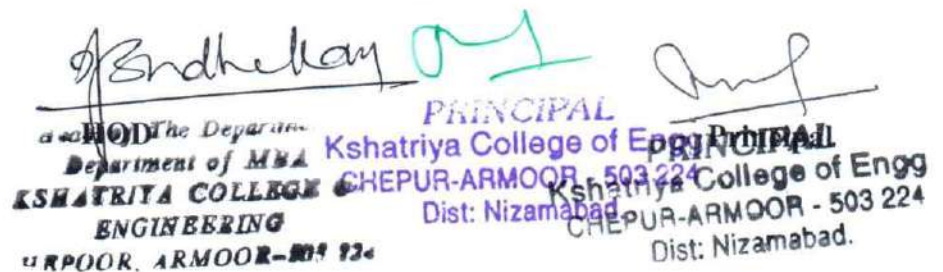 HOD
The Department
Department of MBA
KSHATRIYA COLLEGE
ENGINEERING
ARMOOR
PRINCIPAL
Kshatriya College of Engg
CHEPUR-ARMOOR - 503 224
Dist: Nizamabad.
Principal
PRINCIPAL
Kshatriya College of Engg
CHEPUR-ARMOOR - 503 224
Dist: Nizamabad.